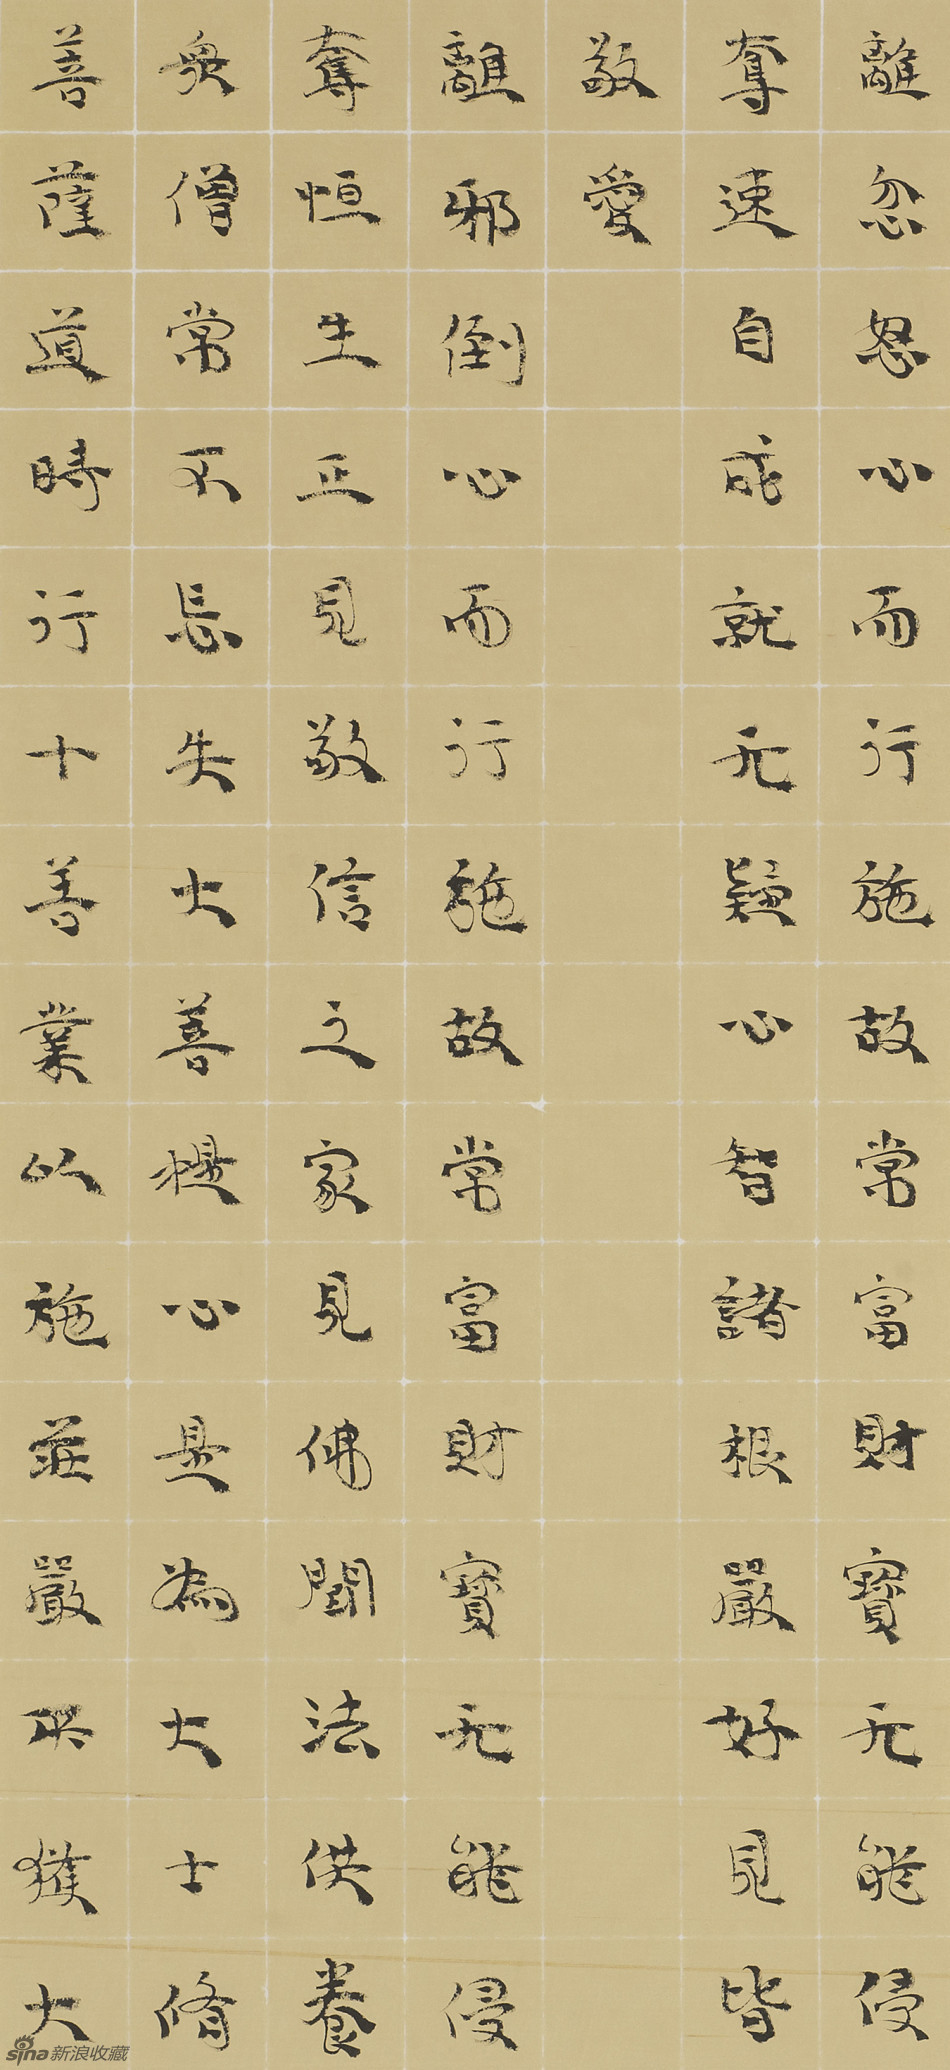 離忿怒心而行施故常富財寶无能侵
奪速自成就无疑心智諸根嚴好見皆
敬愛
離邪倒心而行施故常富財寶无能侵
奪恒生正見敬信之家見佛聞法供養
衆僧常不忘失大菩提心是為大士脩
菩薩道時行十善業以施莊嚴所獲大
sina新浪收藏